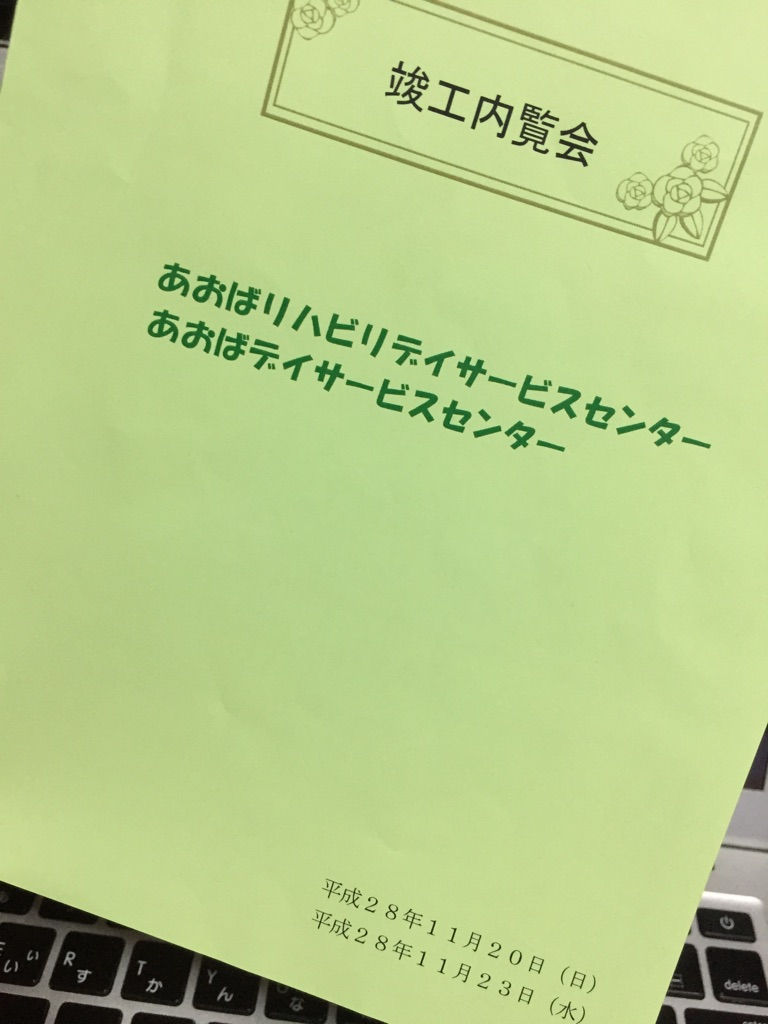 竣工内覧会
あおばリハビリデイサービスセンター
あおばデイサービスセンター
平成２８年１１月２０日（日）
平成２８年１１月２３日（水）
delete
い
い
R
す
T
か
Y
ん
な